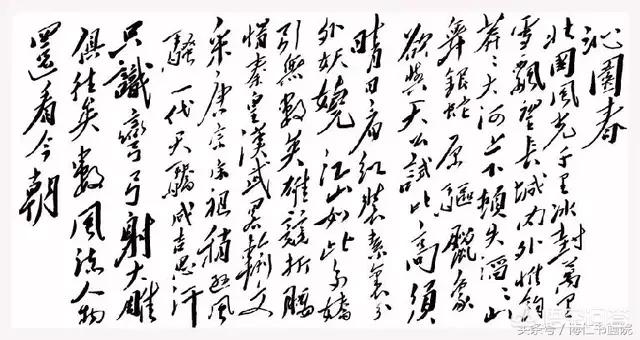 沁園春
北國風光千里冰封萬里
雪飄望長城內外惟餘
莽〻大河上下頓失滔〻山
舞銀蛇原驅臘象
欲與天公試比高須
晴日看紅裝素裹分
外妖嬈江山如此多嬌
引無數英雄競折腰
惜秦皇漢武略輸文
采唐宗宋祖稍遜風
騷一代天驕成吉思汗
只識彎弓射大雕
俱往矣數風流人物
還看今朝
悟空问答
头条号 / 博仁书画院